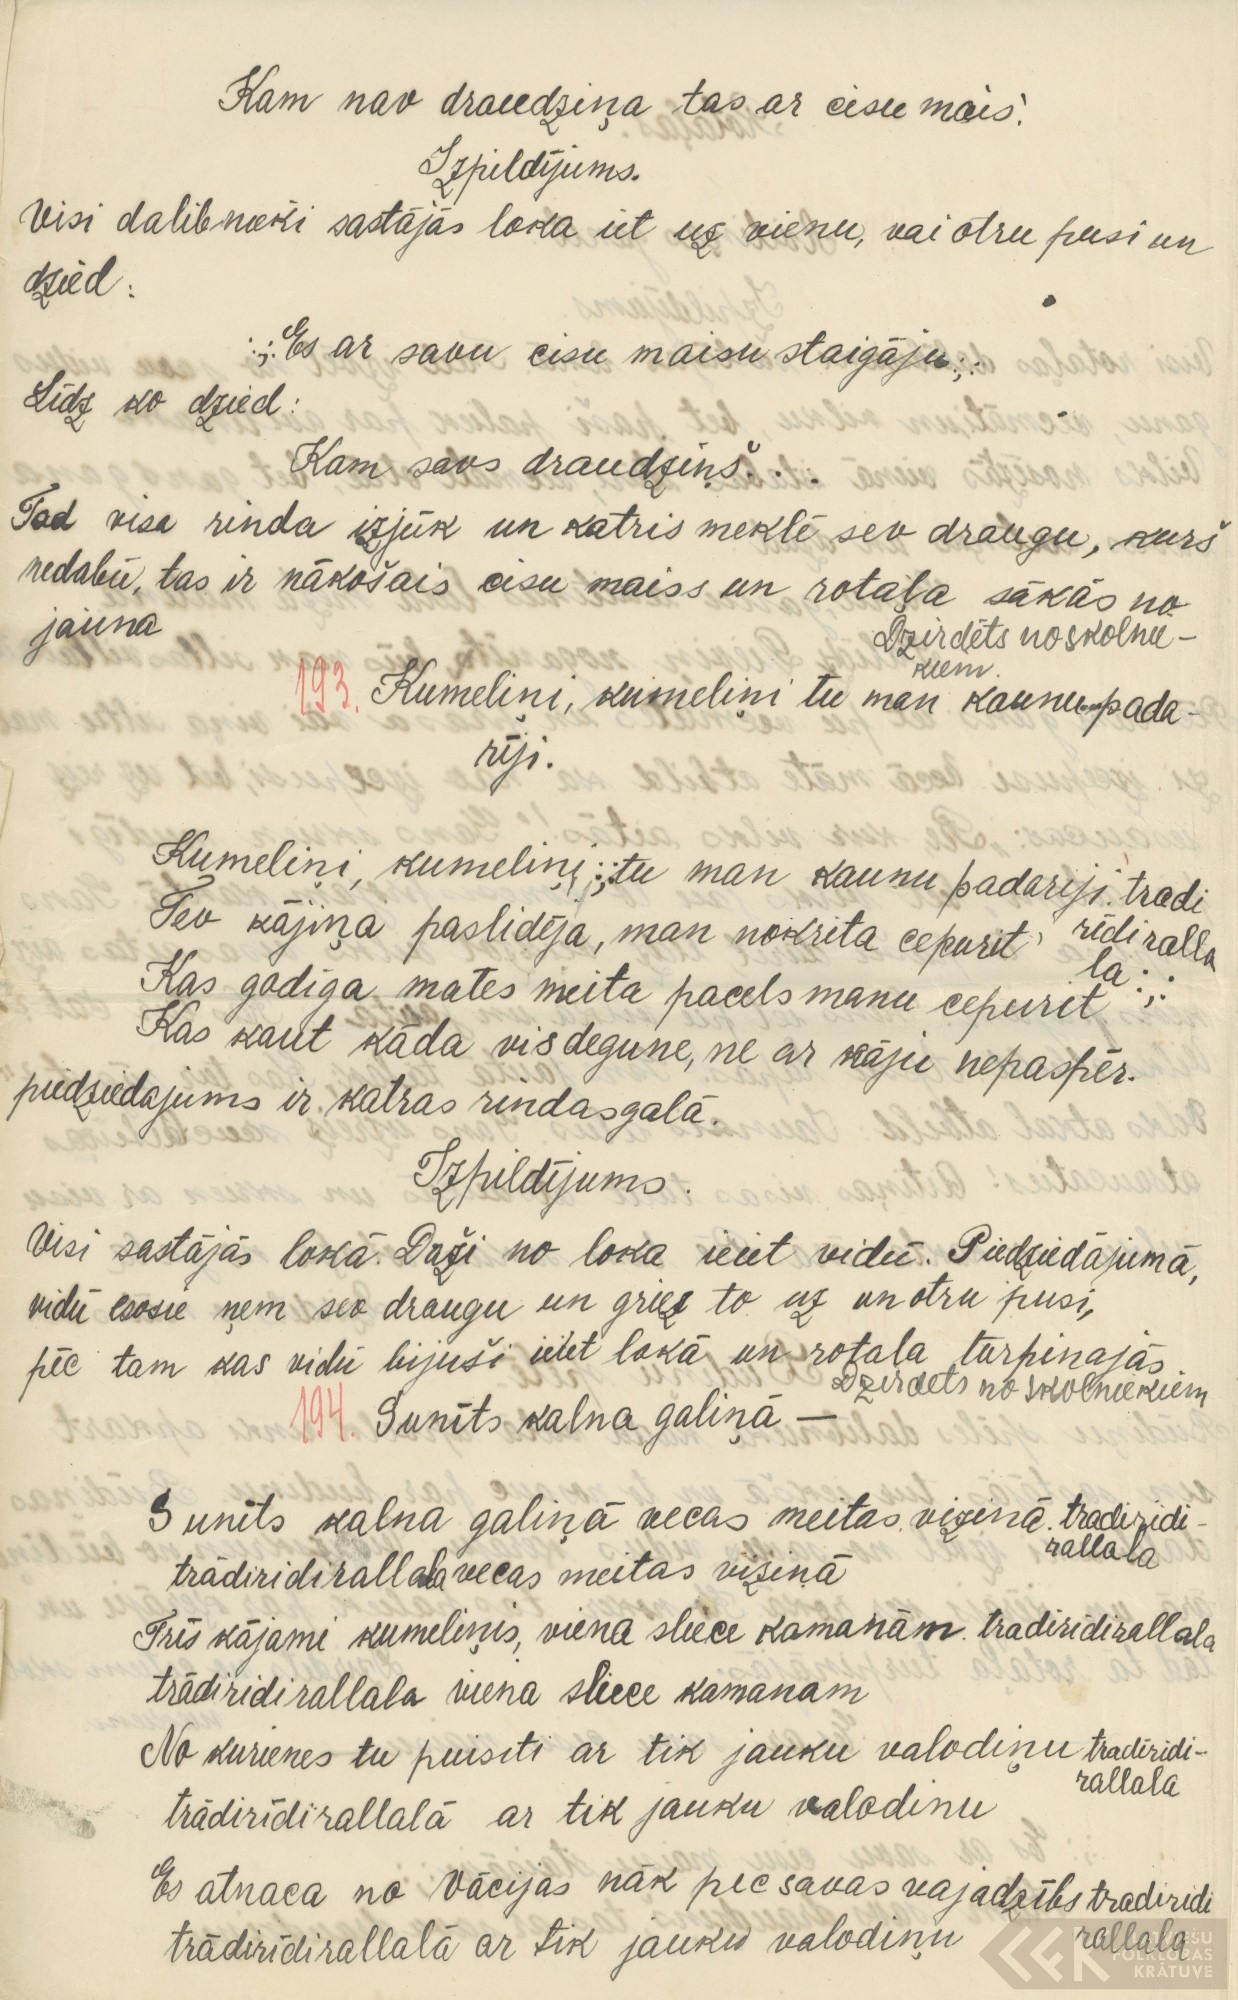 Kam nav draudziņa tas ar cisu mais.
Izpildījums.
Visi dalibnieki sastājās loka iet uz vienu, vai otru pusi un
dzied:
:,: Es ar savu cisu maisu staigāju :,:
Līdz ko dzied:
Kam savs draudziņš . . .
Tad visa rinda izjūk un katris meklē sev draugu, kurš
nedabū, tas ir nākošais cisu maiss un rotaļa sākās no
jauna
Dzirdēts no skolnie-
kiem.
193. Kumeliņi, kumeliņi tu man kaunu pada-
rīji.
Kumeliņi, kumeliņi :,: tu man kaunu padarīji. tradi
ridiralla
la :,:
Tev kājiņa paslidēja, man nokrita cepurit
Kas godiga mates meita pacels manu cepurit
Kas kaut kāda vis degune, ne ar kāju nepaspēr.
piedziedajums ir katras rindas galā.
Izpildījums.
Visi sastājās lokā. Daži no loka ieiet vidū. Piedziedājumā,
vidū esosie ņem sev draugu un griež to uz un otru pusi,
pēc tam kas vidū bijuši ieiet lokā un rotala turpinajās
Dzirdets no skolniekiem
194. Sunīts kalna galiņā —
Sunīts kalna galiņā vecas meitas vizinā. tradiridi-
rallala
trādiridirallala vecas meitas viziņā
Trīs kājami kumeliņis, viena sliece kamanām. tradiridirallala
trādiridirallala viena sliece kamanam
No kurienes tu puisiti ar tik jauku valodiņu tradiridi-
rallala
trādirīdirallalā ar tik jauku valodinu
Es atnaca no Vācijas nāk pec savas vajadzības tradiridi
rallala
trādirīdirallalā ar tik jauku valodiņu
LATVIEŠU
FOLKLORAS
KRĀTUVE